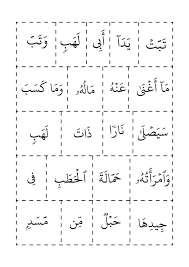 تَبَّتْ يَدَآ أَبِى لَهَبٍ وَتَبَّ
مَآ أَغْنَىٰ عَنْهُ مَالُهُۥ وَمَا كَسَبَ
سَيَصْلَىٰ نَارًا ذَاتَ لَهَبٍ
وَٱمْرَأَتُهُۥ حَمَّالَةَ ٱلْحَطَبِ فِى
جِيدِهَا حَبْلٌ مِّن مَّسَدٍۭ